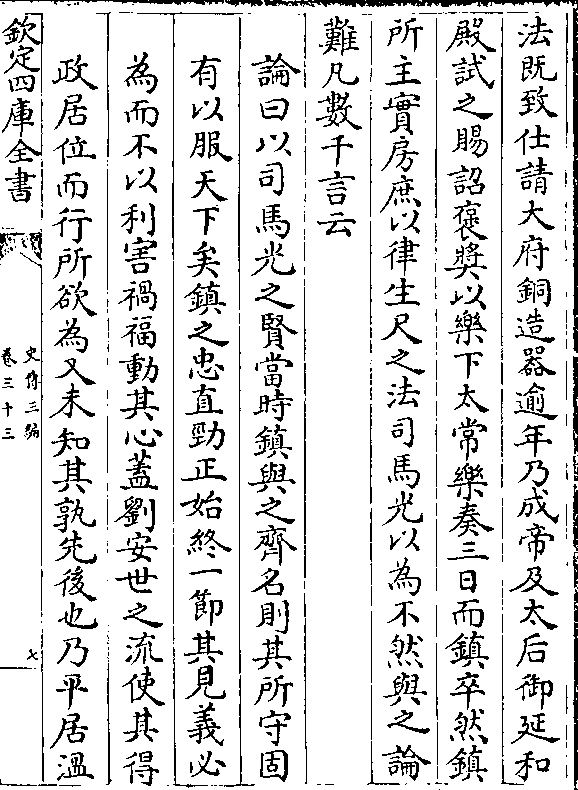 法既致仕請大府銅造器逾年乃成帝及太后御延和
殿試之賜詔褒奬以樂下太常樂奏三日而鎮卒然鎮
所主實房庶以律生尺之法司馬光以為不然與之論
難凡數千言云
論曰以司馬光之賢當時鎮與之齊名則其所守固
有以服天下矣鎮之忠直勁正始終一節其見義必
為而不以利害禍福動其心蓋劉安世之流使其得
政居位而行所欲為又未知其孰先後也乃平居溫
欽定四庫全書
史傳三編
卷三十三
七